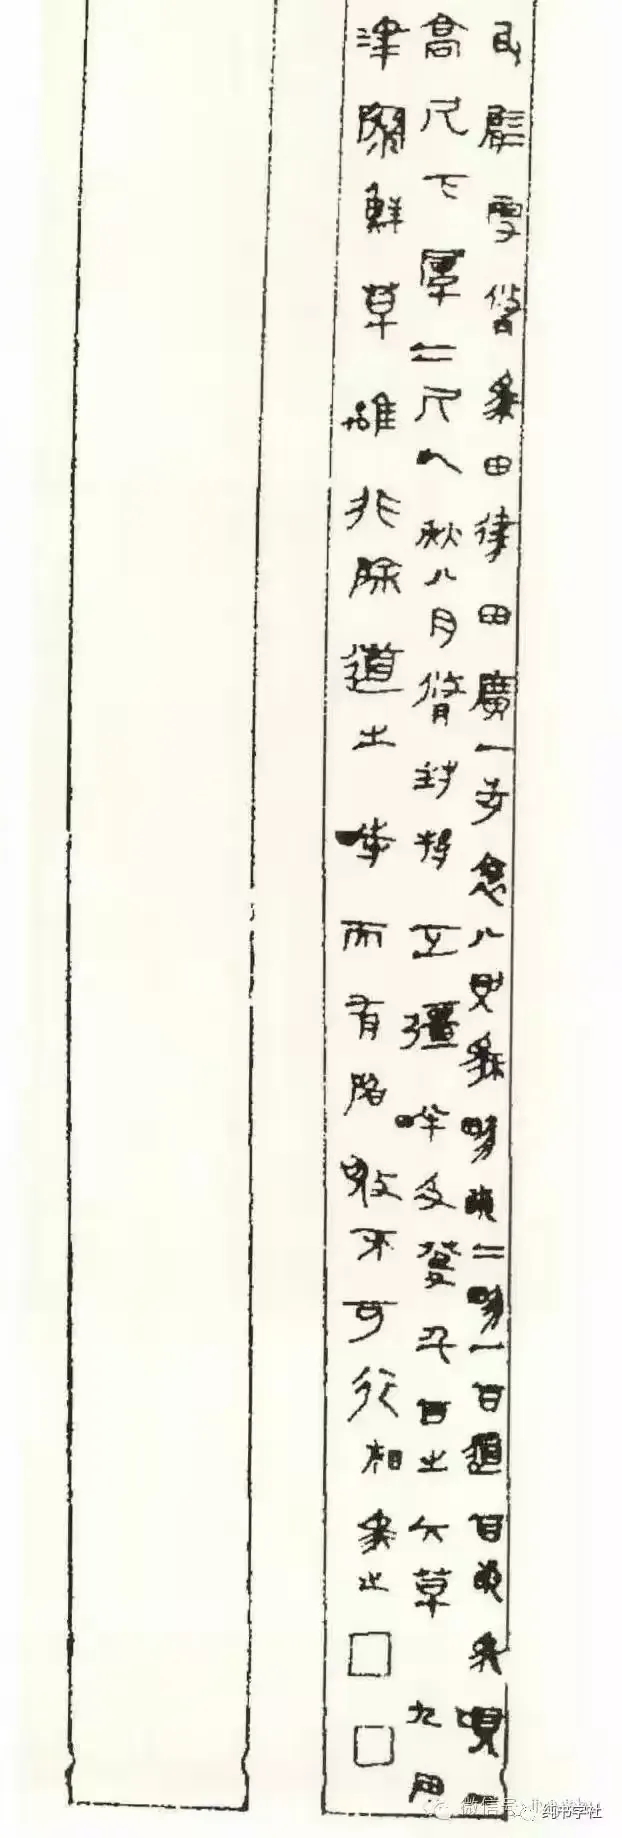 民臂更脩為田律田廣一步袤八則為畛畝二畛一百道百畝為頃一
高尺下厚二尺以秋八月脩封埒正彊畔及癹千百之大草九月
津隧鮮草離非除道之時而有陷敗不可行相為之□□
微信号
纯书学社